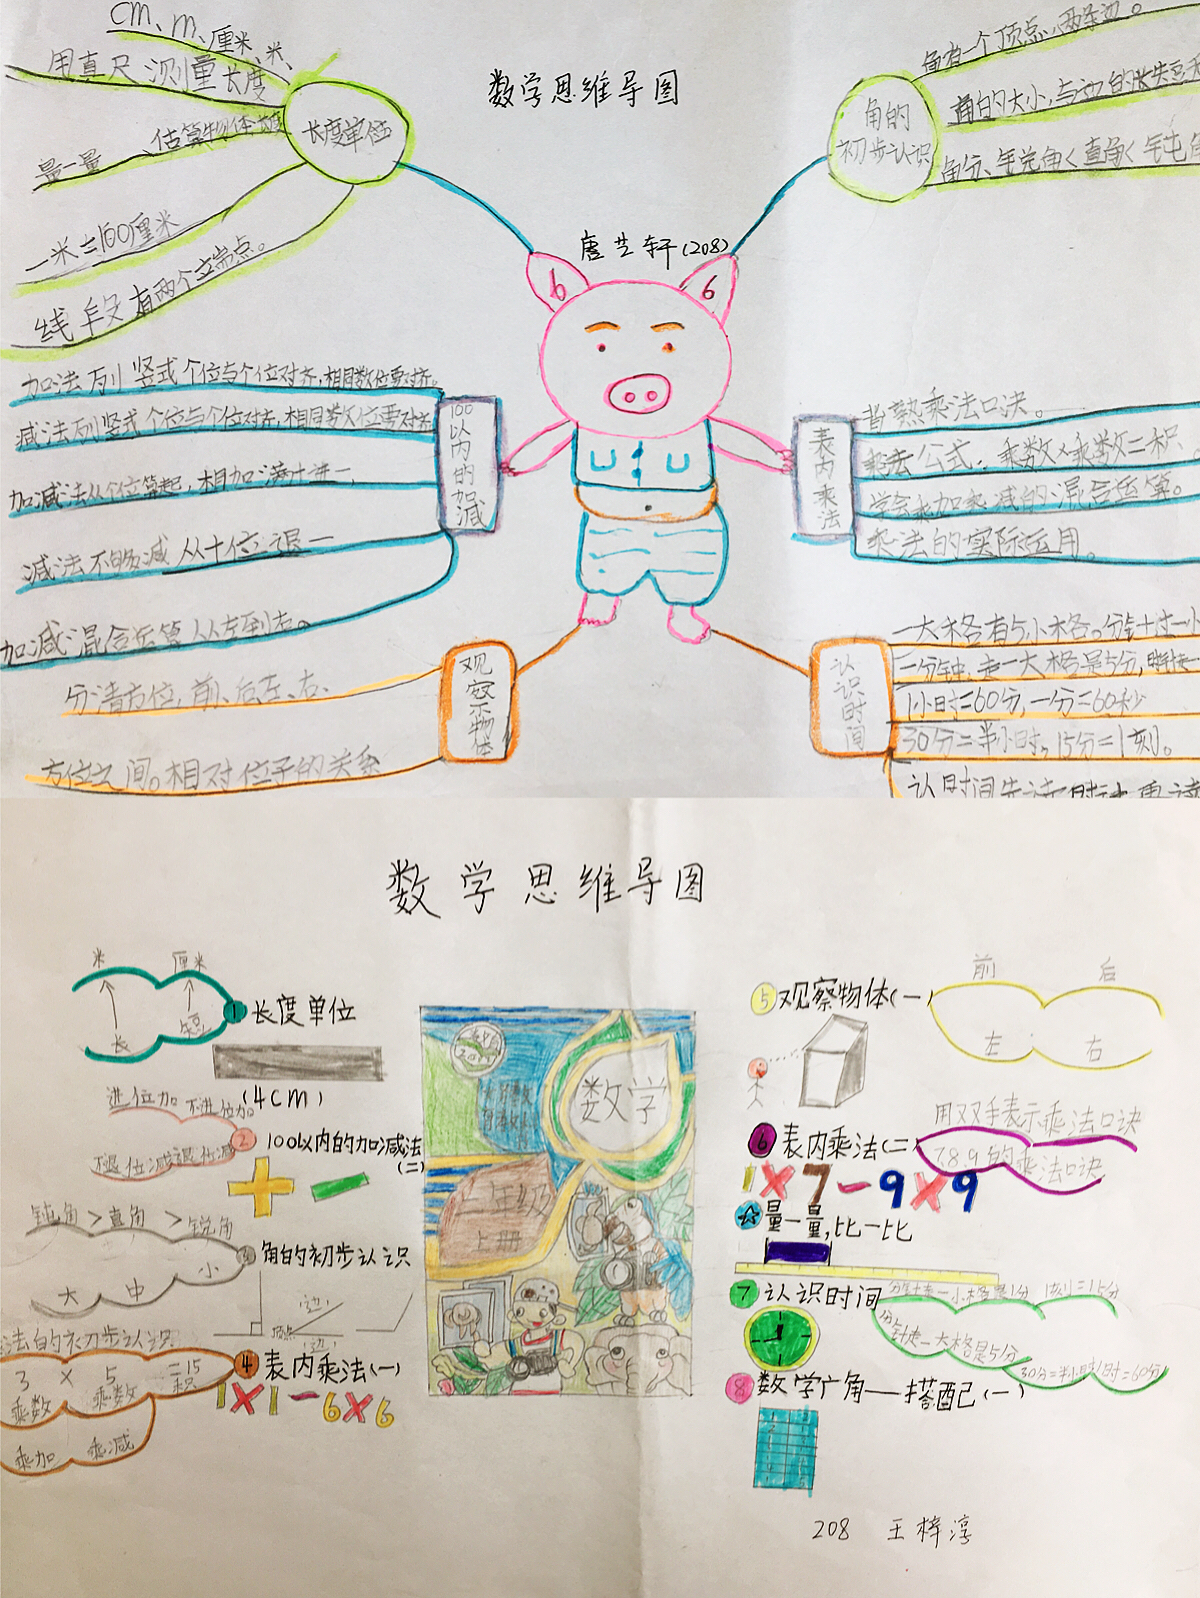 数学思维导图
唐艺轩(208)
cm、m、厘米、米、
用直尺测量长度、
量一量、估算物体长度
一米=100厘米
线段有两个立端点。
长度单位
角的
初步认识
角有一个顶点,两条边。
角的大小,与边的长失
直角<钝角
100以内的加减
加法列竖式个位与个位对齐,相同数位要对齐。
减法列竖式个位与个位对齐,相同数位要对齐
加减法从个位算起,相加满十进一,
减法不够减从十位退一
加减混合运算从左到右。
表内乘法
背熟乘法口决。
乘法公式:乘数×乘数=积
学会乘加乘减的混合运算。
乘法的实际运用。
观察示物体
分清方位,前、后左、右、
方位之间。相对位子的关系
认识时间
一大格有5小格。分针过一小
一分钟,走一大格是5分,
1小时=60分,一分=60秒
30分=半小时,15分=1刻。
认时间先读时
数学思维导图
米 厘米
长 短
1 长度单位
(4cm)
进位加 不进位加
不退位减退位减
2 100以内的加减法
(二)
+ −
钝角>直角>锐角
大 中 小
3 角的初步认识
边
顶点
边
法的初步认识
3 × 5 =15
乘数 乘数 积
乘加 乘减
4 表内乘法(一)
1×1-6×6
数学
二年级
上册
5 观察物体(一)
前 后
左 右
6 表内乘法(二)
用双手表示乘法口诀
7 8 9的乘法口诀
1×7-9×9
☆ 量一量,比一比
7 认识时间
分针走一小格是1分 1刻=15分
分针走一大格是5分
30分=半小时 1时=60分
8 数学广角——搭配(一)
208 王梓淳